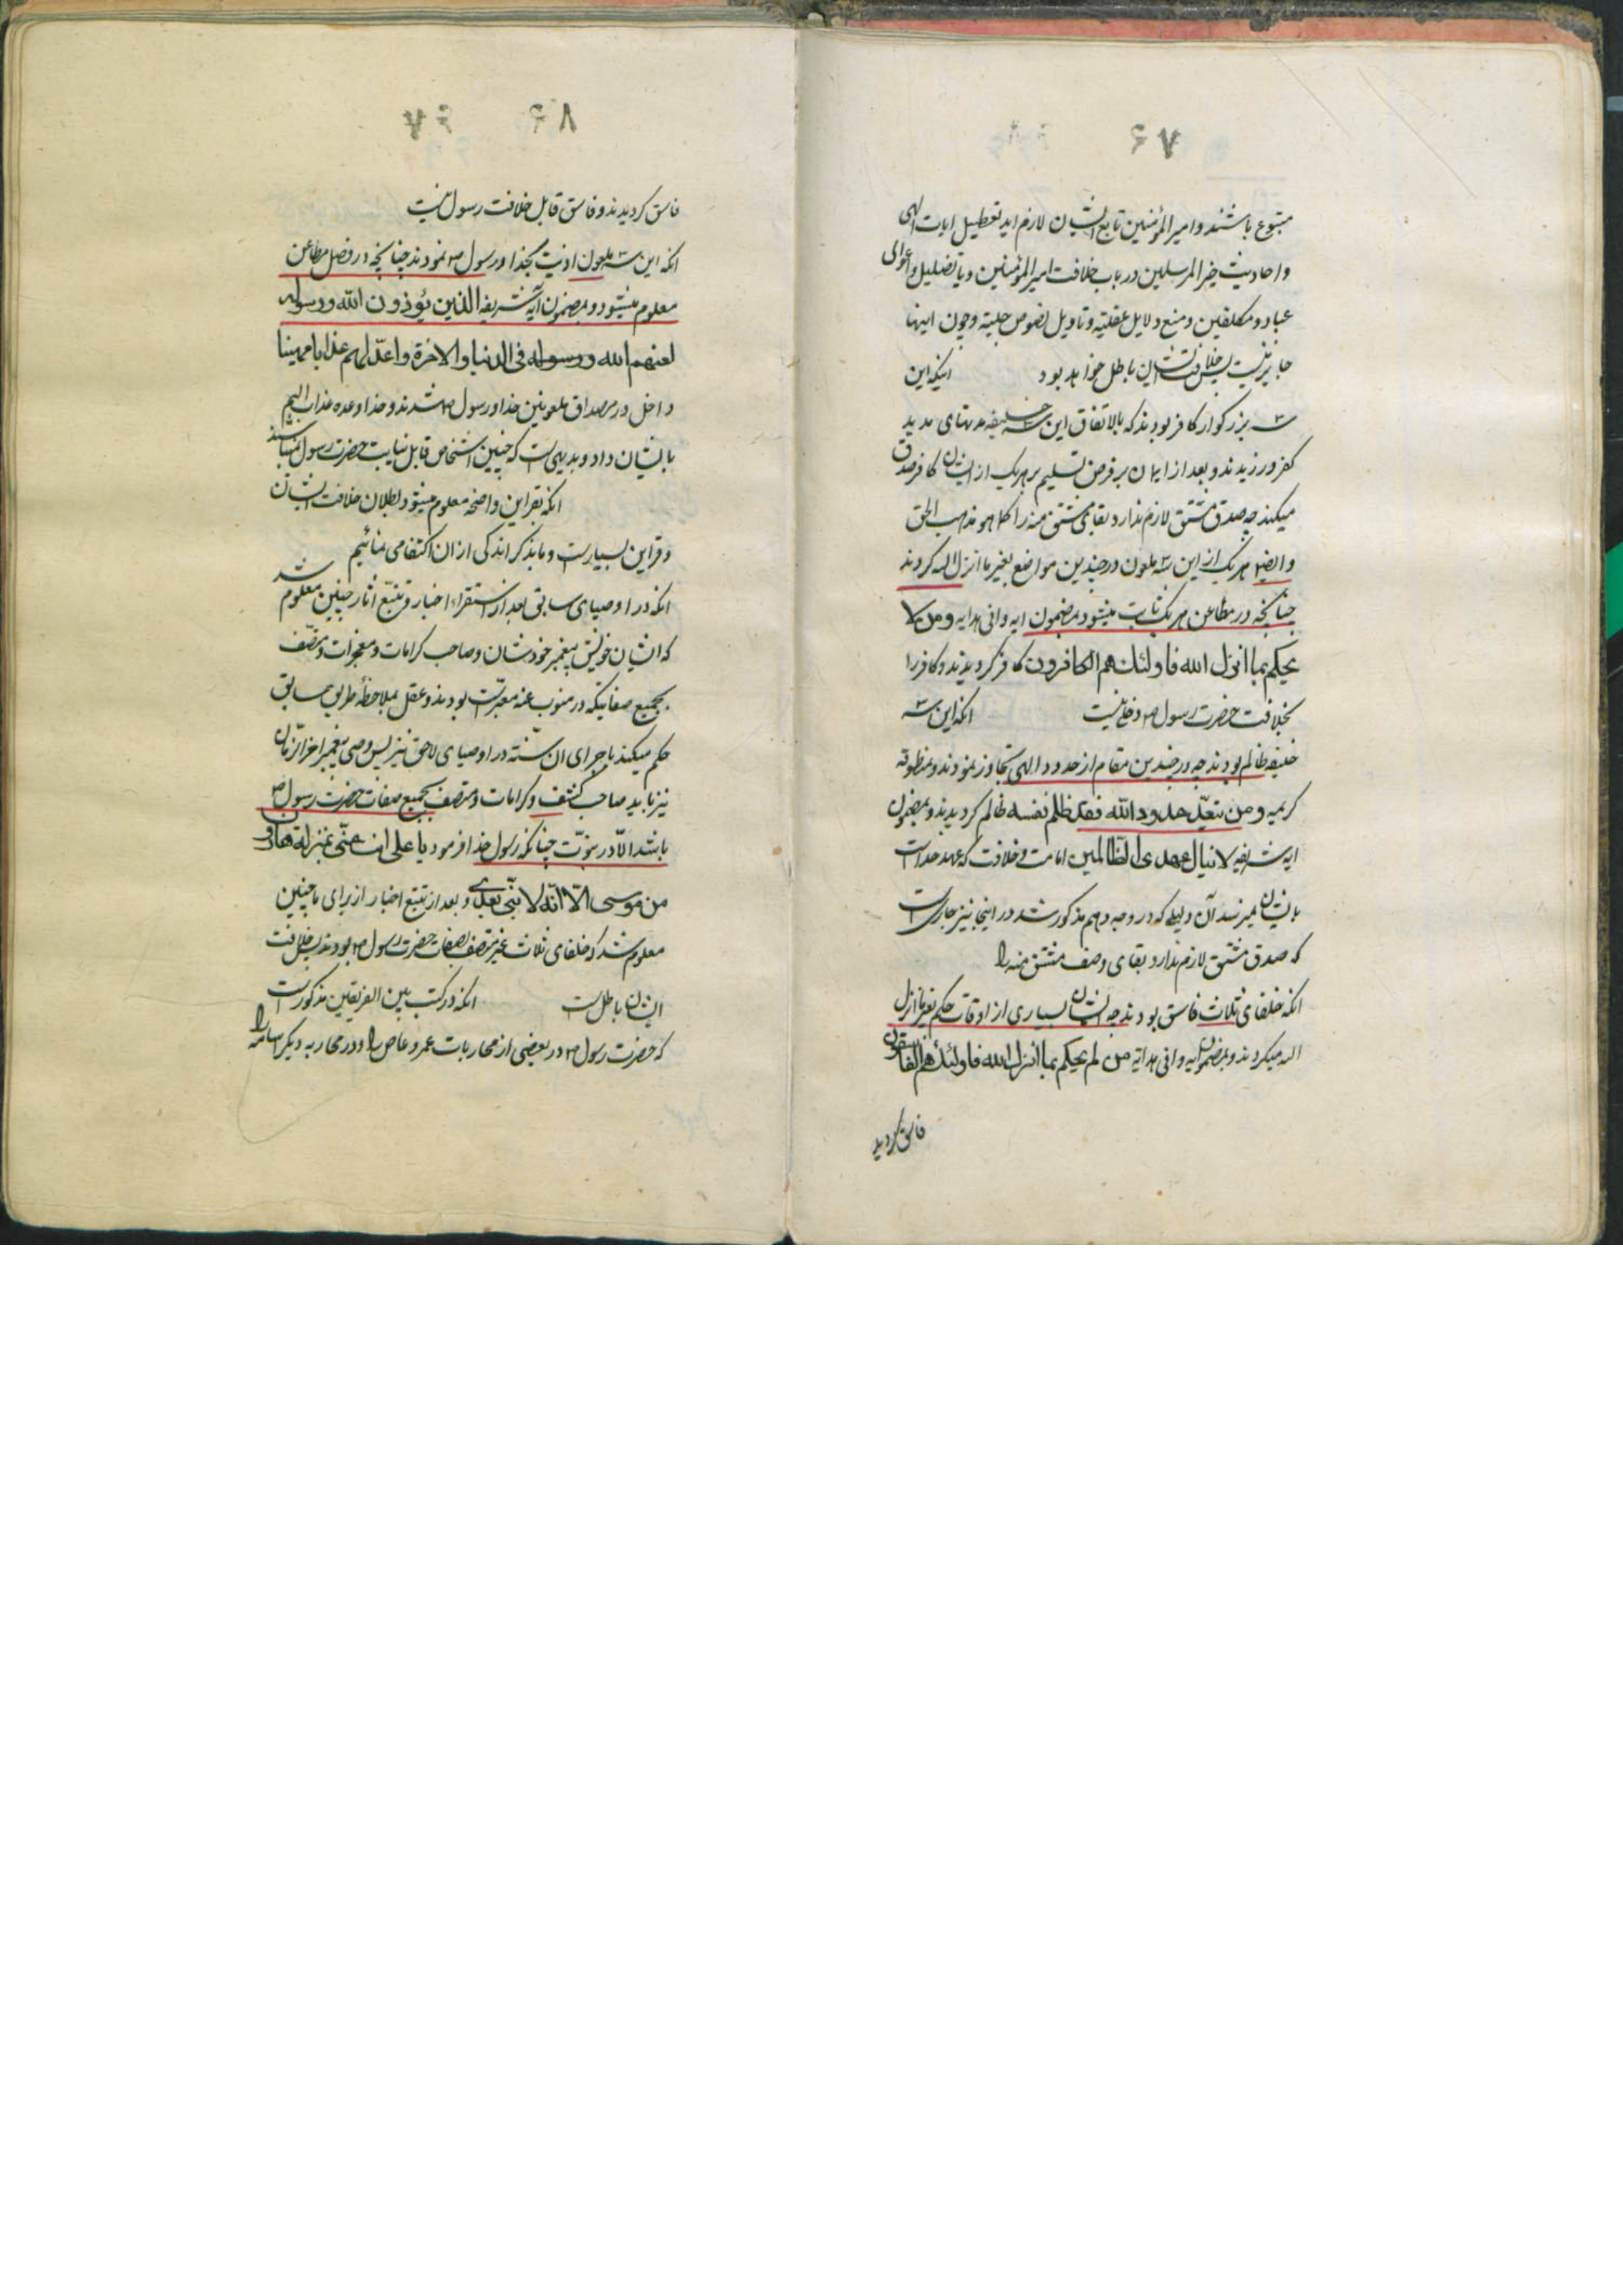 ۶۷
متبوع باشند و امیر المؤمنین تابع ایشان لازم اید تعطیل ایات الهی
و احادیث خیر المرسلین در باب خلافت امیر المؤمنین و یا تضلیل و اغوای
عباد و مکلفین و منع دلایل عقلیه و تاویل نصوص جلیه و چون اینها
جایز نیست پس خلافت ایشان باطل خواهد بود انیکه این
سه بزرکوار کافر بودند که بالاتفاق این سه خلیفه مدتهای مدید
کفر ورزیدند و بعد از ایمان بر فرض تسلیم بر هریک از ایشان کافر صدق
میکند چه صدق مشتق لازم ندارد بقای مشتق منه را کما هو مذهب الحق
و ایضا هر یک از این سه ملعون در چندین مواضع بغیر ما انزل الله کردند
چنانچه در مطاعن هریک ثابت میشود بمضمون ایه وافی هدایه و من لا
یحکم بما انزل الله فاولئك هم الکافرون کافر کردیدند و کافر را
بخلافت حضرت رسول ص دخلی نیست انکه این سه
خلیفه ظالم بودند چه در چندین مقام از حدود الهی تجاوز نمودند و بمنطوقه
کریمه و من یتعدّ حدود الله فقد ظلم نفسه ظالم کردیدند و بمضمون
ایه شریفه لا ینال عهدی الظالمین امامت و خلافت که عهد خداست
بایشان نمیرسد آن دلیلی که در وجه دهم مذکور شد در اینجا نیز جاریست
که صدق مشتق لازم ندارد بقای وصف مشتق منه را
انکه خلفای ثلاث فاسق بودند چه ایشان بسیاری از اوقات حکم بغیر ما انزل
الله میکردند و بمضمون ایه وافی هدایه من لم یحکم بما انزل الله فاولئك هم الفاسقون
فاسق کردید
۶۸
فاسق کردیدند و فاسق قابل خلافت رسول نیست
انکه این سه ملعون اذیت بخدا و رسول ص نمودند چنانچه در فصل مطاعن
معلوم میشود و بمضمون آیه شریفه الذین یؤذون الله و رسوله
لعنهم الله و رسوله فی الدنیا والاخرة و اعدّ لهم عذابا مهینا
داخل در مصداق ملعونین خدا و رسول ص شدند و خدا وعده عذاب الیم
بایشان داد و بدیهی است که چنین اشخاص قابل نیابت حضرت رسول نمیباشند
انکه بقراین واضحه معلوم میشود بطلان خلافت ایشان
و قراین بسیار است و ما بذکر اندکی از ان اکتفا می نمائیم
انکه در اوصیای سابق بعد از استقراء اخبار و تتبع اثار چنین معلوم شد
که ایشان خویش پیغمبر خودشان و صاحب کرامات و معجزات و متصف
بجمیع صفاتیکه در منوب عنه معتبر است بودند و عقل بملاحظهٔ طریق سابق
حکم میکند باجرای ان سنّته در اوصیای لاحق نیز پس وصی پیغمبر اخر الزمان
نیز باید صاحب کشف و کرامات و متصف بجمیع صفات حضرت رسول ص
باشد الّا در نبوّت چنانکه رسول خدا فرمود یا علی انت منّی بمنزلة هارون
من موسی الّا انّه لا نبیّ بعدی و بعد از تتبع اخبار از برای ما چنین
معلوم شد که خلفای ثلاث غیر متصف بصفات حضرت رسول ص بودند پس خلافت
ایشان باطل است انکه در کتب بین الفریقین مذکور است
که حضرت رسول ص در بعضی از محاربات عمرو عاص را و در محاربه دیکر اسامه را